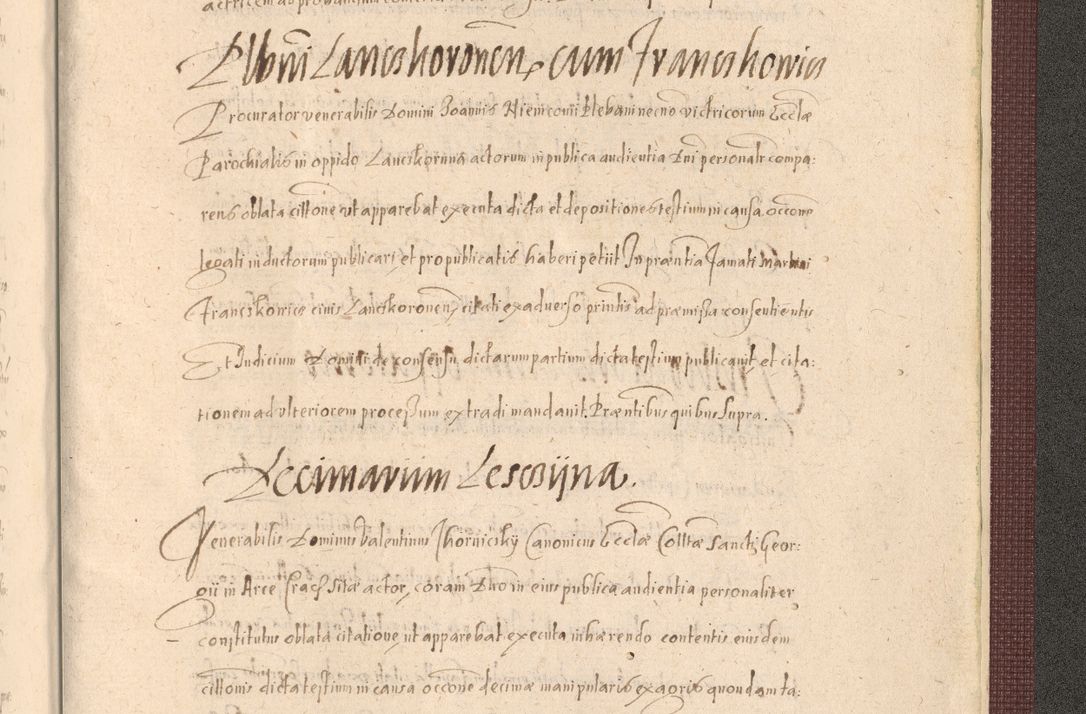 Plbni Lanczkoronen, cum Franczkowicz
Procurator venerabilis Domini Joannis Niemconii Plebani necno victricorum Eccłæ
Parochialis in oppido Lanczkorunna actorum in publica audientia Dni personalr compa:
rens oblata cittone ut apparebat executa dicta et depositiones testium in causa occone
legati inductorum publicari et pro publicatis haberi petiit In præntia Famati Martini
Franczkowicz civis Lanczkoronen, citati ex adverso printis ad præmissa consentientis
Et Judicium Domini de consensu dictarum partium dicta testium publicavit et cita:
tionem ad ulteriorem processum extradi mandavit. Præntibus quibus supra.
Decimarum Lesczijna.
Venerabilis Dominus Valentinus Khorniczky Canonicus Eccłæ Colltæ Sancti Geor:
gii in Arce Crac. sitæ actor, coram Dno in eius publica audientia personaliter
constitutus oblata citatione ut apparebat executa inhærendo contentis eiusdem
cittonis dicta testium in causa occone decimæ manipularis ex agris quondam ta: